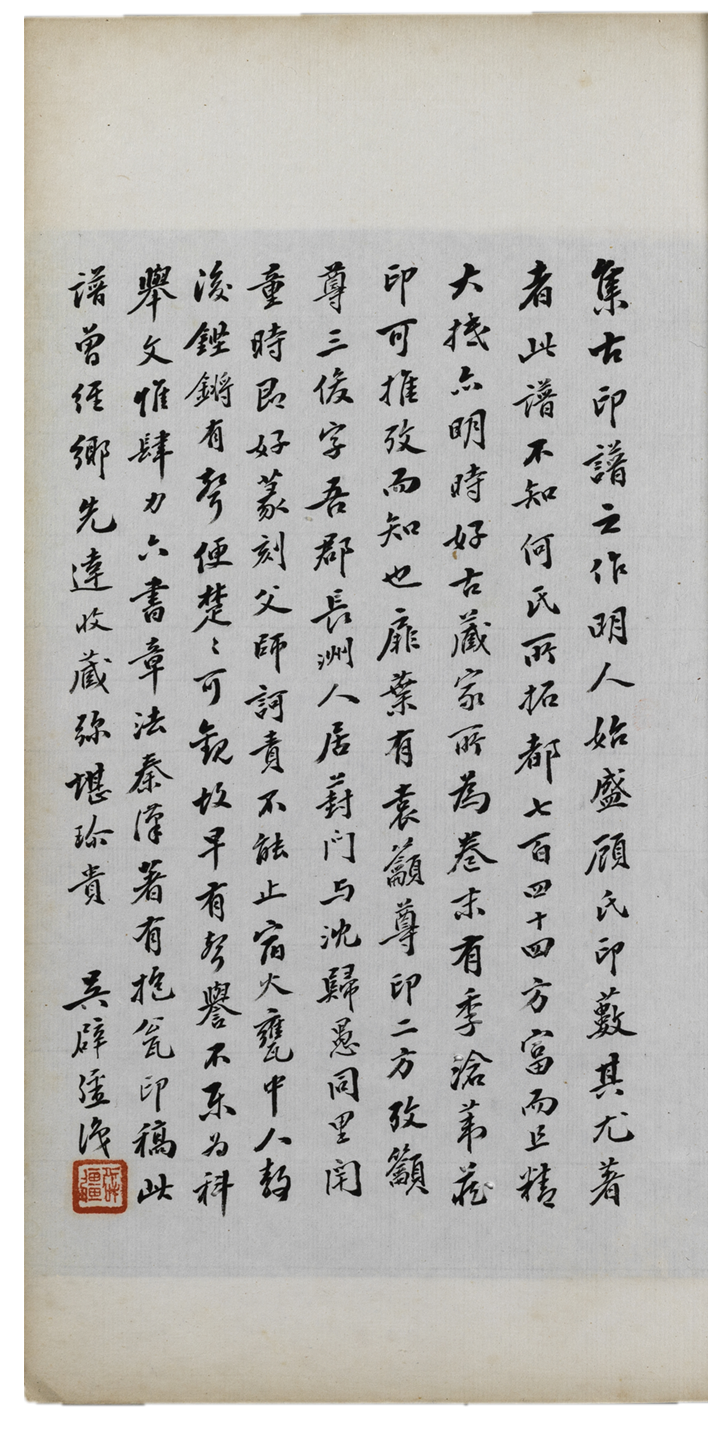 集古印譜之作明人始盛顧氏印藪其尤著
者此譜不知何氏所拓都七百四十四方富而且精
大抵亦明時好古藏家所為卷末有季滄葦藏
印可推攷而知也扉葉有袁籲尊印二方攷籲
尊三俊字吾郡長洲人居葑门与沈歸愚同里閈
童時即好篆刻父師訶責不能止宿火甕中人静
後鏗鏘有聲便楚〻可觀故早有聲譽不樂为科
舉文惟肆力六書章法秦漢著有抱瓮印稿此
譜曾經鄉先達收藏弥堪珍貴 吴辟疆識
辟疆